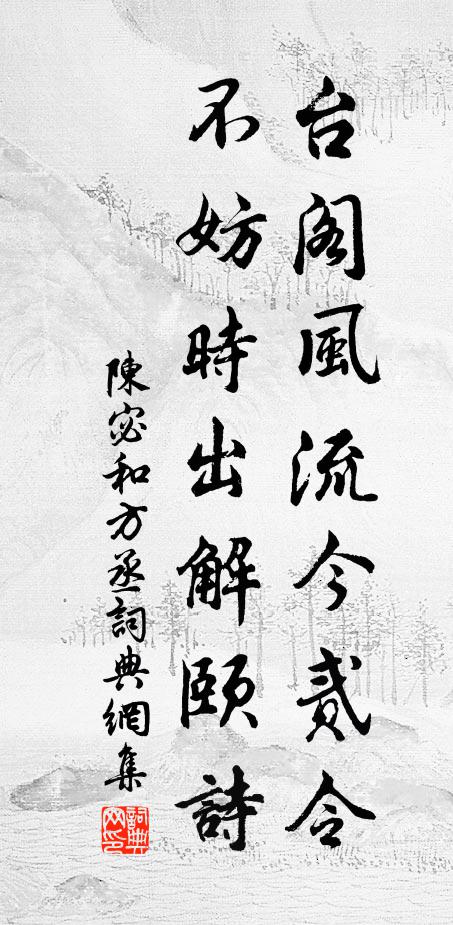 台閣風流今貳令
不妨時出解頤詩
陳宓和方丞詞典網集
詞典網印